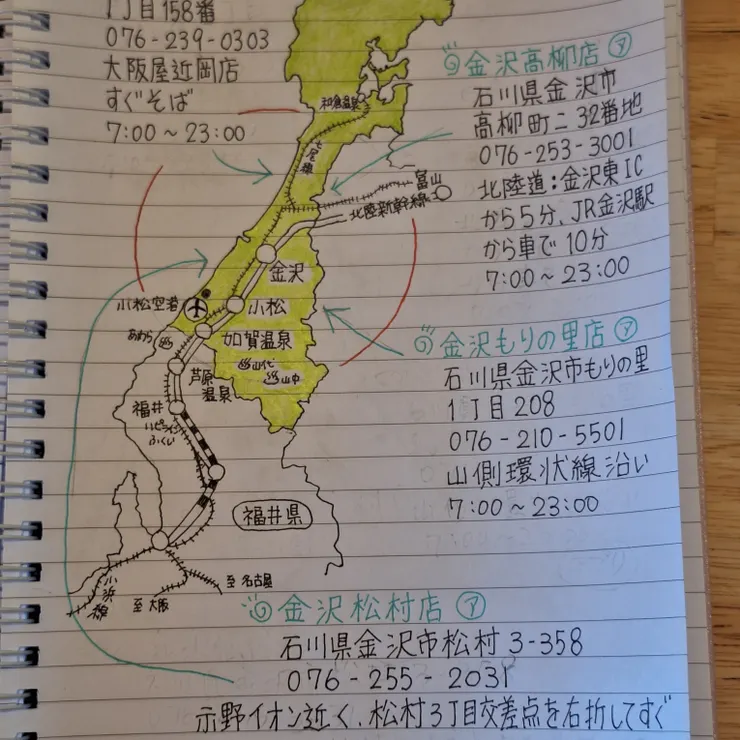 1丁目158番
076-239-0303
大阪屋近岡店
すぐそば
7:00～23:00
金沢高柳店 ㋐
石川県金沢市
高柳町ニ32番地
076-253-3001
北陸道:金沢東IC
から5分、JR金沢駅
から車で10分
7:00～23:00
和倉温泉
七尾線
富山
北陸新幹線
金沢
小松空港
小松
あわら
加賀温泉
山代
山中
芦原
温泉
福井
ハピライン
ふくい
福井県
小浜線
至大阪
至名古屋
金沢もりの里店 ㋐
石川県金沢市もりの里
1丁目208
076-210-5501
山側環状線沿い
7:00～23:00
金沢松村店 ㋐
石川県金沢市松村3-358
076-255-2031
示野イオン近く、松村3丁目交差点を右折してすぐ